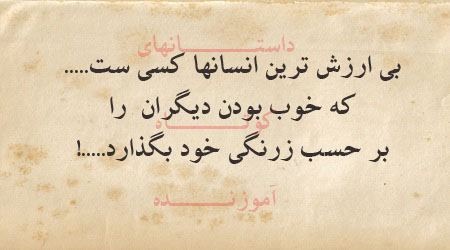 داستــــــانهای
بی ارزش ترین انسانها کسی ست.....
که خوب بودن دیگران را
کوتـــــاه
بر حسب زرنگی خود بگذارد.....!
آموزنـــــده